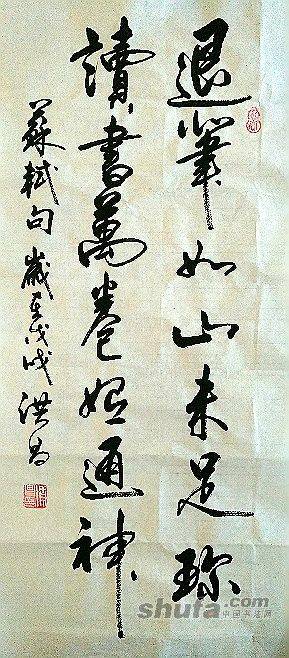 退筆如山未足珎
讀書萬卷始通神
蘇軾句 歲在戊戌 洪
shufa.com
中国书法网